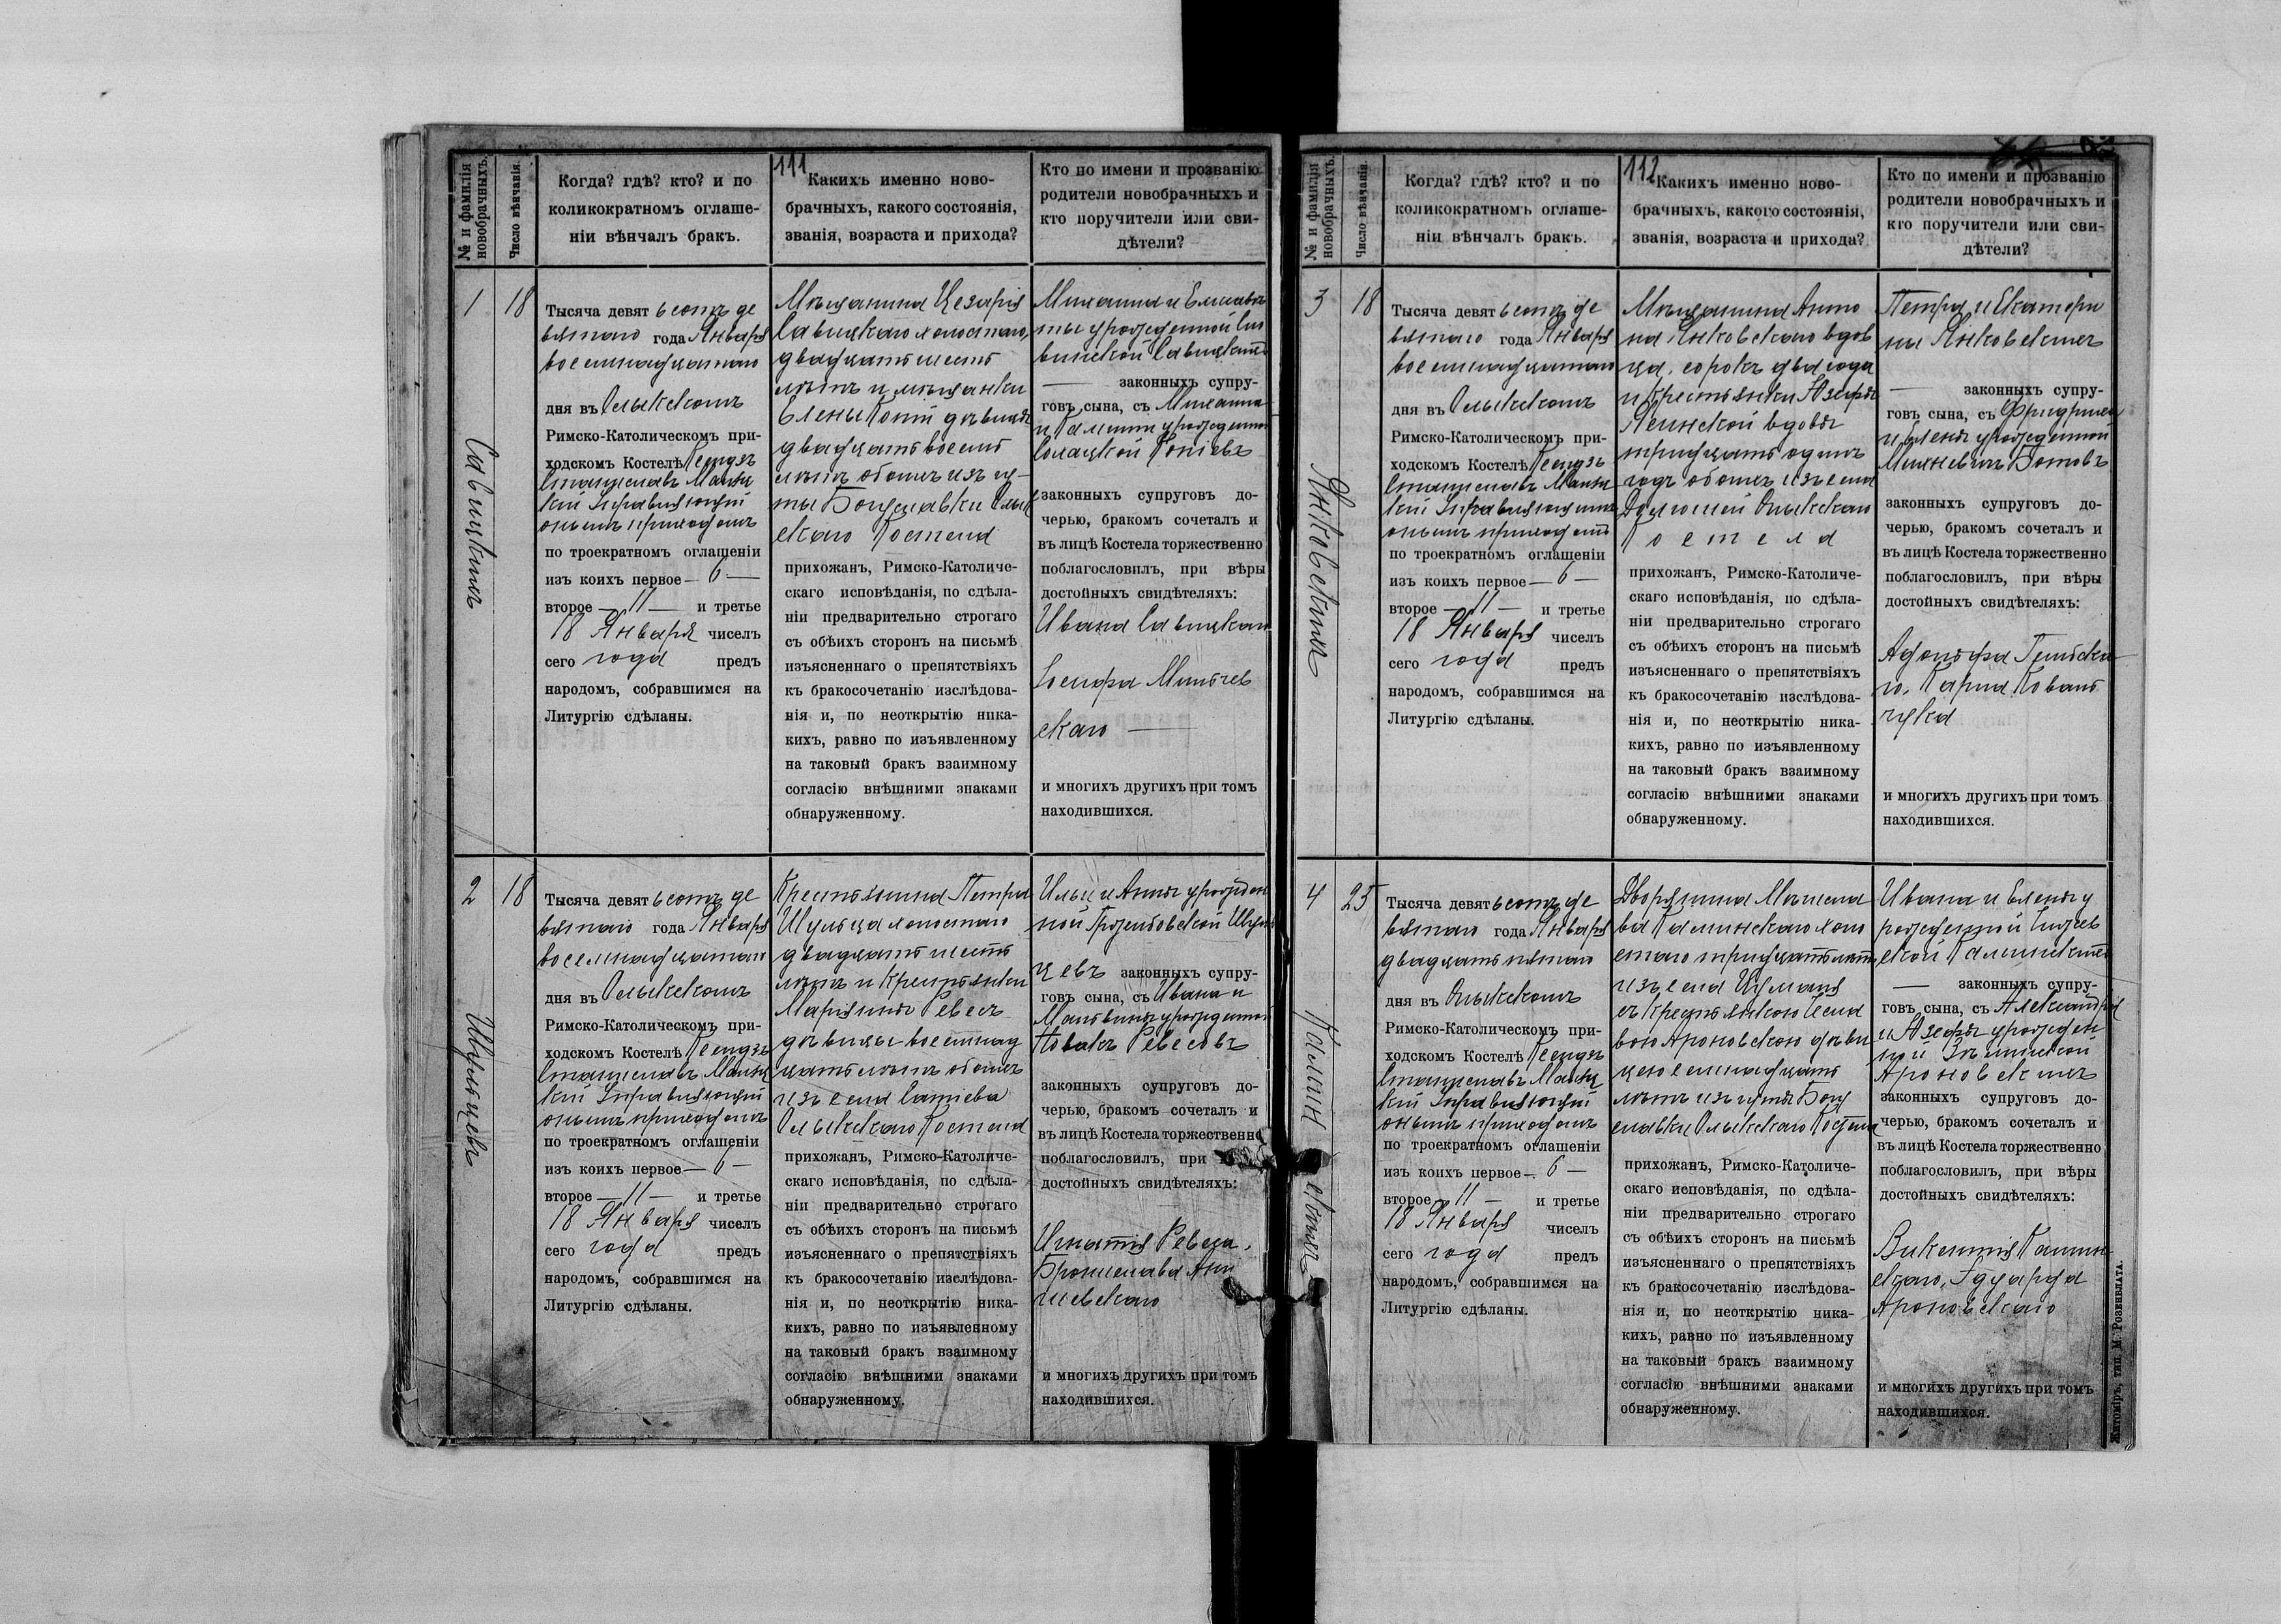 111
№ и фамилія новобрачныхъ.
Число вѣнчанія.
Когда? гдѣ? кто? и по
коликократномъ оглаше-
ніи вѣнчалъ бракъ.
Какихъ именно ново-
брачныхъ, какого состоянія,
званія, возраста и прихода?
Кто по имени и прозванію
родители новобрачныхъ и
кто поручители или сви-
дѣтели?
1
Савицкихъ
18
Тысяча девятьсотъ де
вятаго года Января
восемнадцатаго
дня въ Олыкскомъ
Римско-Католическомъ при-
ходскомъ Костелѣ Ксендзъ
Станиславъ
кій Управляющій
онымъ приходомъ
по троекратномъ оглашеніи
изъ коихъ первое — 6 —
второе — 11 — и третье
18 Января чиселъ
сего года предъ
народомъ, собравшимся на
Литургію сдѣланы.
Мѣщанина Цезарія
Савицкаго холостаго,
двадцать шесть
лѣтъ и мѣщанки
Елены Копій дѣвицы
двадцать восемь
лѣтъ обоихъ изъ чу-
ты Богуславки Олык
скаго Костела
прихожанъ, Римско-Католиче-
скаго исповѣданія, по сдѣла-
ніи предварительно строгаго
съ обѣихъ сторонъ на письмѣ
изъясненнаго о препятствіяхъ
къ бракосочетанію изслѣдова-
нія и, по неоткрытію ника-
кихъ, равно по изъявленному
на таковый бракъ взаимному
согласію внѣшними знаками
обнаруженному.
Михаила и Елисаве
ты урожденной
Савицкихъ
— законныхъ супру-
говъ сына, съ Михаила
и урожденной
Копіевъ
законныхъ супруговъ до-
черью, бракомъ сочеталъ и
въ лицѣ Костела торжественно
поблагословилъ, при вѣры
достойныхъ свидѣтеляхъ:
Ивана Савицкаго
Іосифа Мильчев
скаго —
и многихъ другихъ при томъ
находившихся.
2
Шульцевъ
18
Тысяча девятьсотъ де
вятаго года Января
восемнадцатаго
дня въ Олыкскомъ
Римско-Католическомъ при-
ходскомъ Костелѣ Ксендзъ
Станиславъ
кій Управляющій
онымъ приходомъ
по троекратномъ оглашеніи
изъ коихъ первое — 6 —
второе — 11 — и третье
18 Января чиселъ
сего года предъ
народомъ, собравшимся на
Литургію сдѣланы.
Крестьянина Петра
Шульца холостаго
двадцать шесть
лѣтъ и Крестьянки
Маріянны Ревесъ
дѣвицы восемнад
цать лѣтъ обоихъ
изъ села
Олыкскаго Костела
прихожанъ, Римско-Католиче-
скаго исповѣданія, по сдѣла-
ніи предварительно строгаго
съ обѣихъ сторонъ на письмѣ
изъясненнаго о препятствіяхъ
къ бракосочетанію изслѣдова-
нія и, по неоткрытію ника-
кихъ, равно по изъявленному
на таковый бракъ взаимному
согласію внѣшними знаками
обнаруженному.
Ильи и Анны урожден
ной Шуль
цевъ законныхъ супру-
говъ сына, съ Ивана и
Мальвины урожденной
Новакъ Ревесовъ
законныхъ супруговъ до-
черью, бракомъ сочеталъ и
въ лицѣ Костела торжественно
поблагословилъ, при
достойныхъ свидѣтеляхъ:
Игнатія Ревеса,
Бронислава
шевскаго
и многихъ другихъ при томъ
находившихся.
112
№ и фамилія новобрачныхъ.
Число вѣнчанія.
Когда? гдѣ? кто? и по
коликократномъ оглаше-
ніи вѣнчалъ бракъ.
Какихъ именно ново-
брачныхъ, какого состоянія,
званія, возраста и прихода?
Кто по имени и прозванію
родители новобрачныхъ и
кто поручители или сви-
дѣтели?
3
Янковскихъ
18
Тысяча девятьсотъ де
вятаго года Января
восемнадцатаго
дня въ Олыкскомъ
Римско-Католическомъ при-
ходскомъ Костелѣ Ксендзъ
Станиславъ
кій Управляющій
онымъ приходомъ
по троекратномъ оглашеніи
изъ коихъ первое — 6 —
второе — 11 — и третье
18 Января чиселъ
сего года предъ
народомъ, собравшимся на
Литургію сдѣланы.
Мѣщанина Анто
на Янковскаго вдов
ца, сорокъ два года
и Крестьянки Юзефы
вдовы
тридцать одинъ
годъ обоихъ изъ села
Олыкскаго
Костела
прихожанъ, Римско-Католиче-
скаго исповѣданія, по сдѣла-
ніи предварительно строгаго
съ обѣихъ сторонъ на письмѣ
изъясненнаго о препятствіяхъ
къ бракосочетанію изслѣдова-
нія и, по неоткрытію ника-
кихъ, равно по изъявленному
на таковый бракъ взаимному
согласію внѣшними знаками
обнаруженному.
Петра и Екатери
ны Янковскихъ
— законныхъ супру-
говъ сына, съ Фридриха
и Елены урожденной
законныхъ супруговъ до-
черью, бракомъ сочеталъ и
въ лицѣ Костела торжественно
поблагословилъ, при вѣры
достойныхъ свидѣтеляхъ:
Адольфа
го, Карла Коваль
чука
и многихъ другихъ при томъ
находившихся.
4
Калинскихъ
25
Тысяча девятьсотъ де
вятаго года Января
двадцать пятаго
дня въ Олыкскомъ
Римско-Католическомъ при-
ходскомъ Костелѣ Ксендзъ
Станиславъ
кій Управляющій
онымъ приходомъ
по троекратномъ оглашеніи
изъ коихъ первое — 6 —
второе — 11 — и третье
18 Января чиселъ
сего года предъ
народомъ, собравшимся на
Литургію сдѣланы.
Дворянина Мѣчисла
ва Калинскаго холо
стаго тридцать лѣтъ
изъ села Цуманя
съ Крестьянкою Чесла
вою Ароновскою дѣви
цею семнадцать
лѣтъ изъ чуты Богу
славки Олыкскаго Костела
прихожанъ, Римско-Католиче-
скаго исповѣданія, по сдѣла-
ніи предварительно строгаго
съ обѣихъ сторонъ на письмѣ
изъясненнаго о препятствіяхъ
къ бракосочетанію изслѣдова-
нія и, по неоткрытію ника-
кихъ, равно по изъявленному
на таковый бракъ взаимному
согласію внѣшними знаками
обнаруженному.
Ивана и Елены у
рожденной
ской Калинскихъ
— законныхъ супру-
говъ сына, съ Александра
и Юзефы урожден
ной
Ароновскихъ
законныхъ супруговъ до-
черью, бракомъ сочеталъ и
въ лицѣ Костела торжественно
поблагословилъ, при вѣры
достойныхъ свидѣтеляхъ:
Викентія Калин
скаго, Эдуарда
Ароновскаго
и многихъ другихъ при томъ
находившихся.
Житоміръ, тип. М. Розенблата.